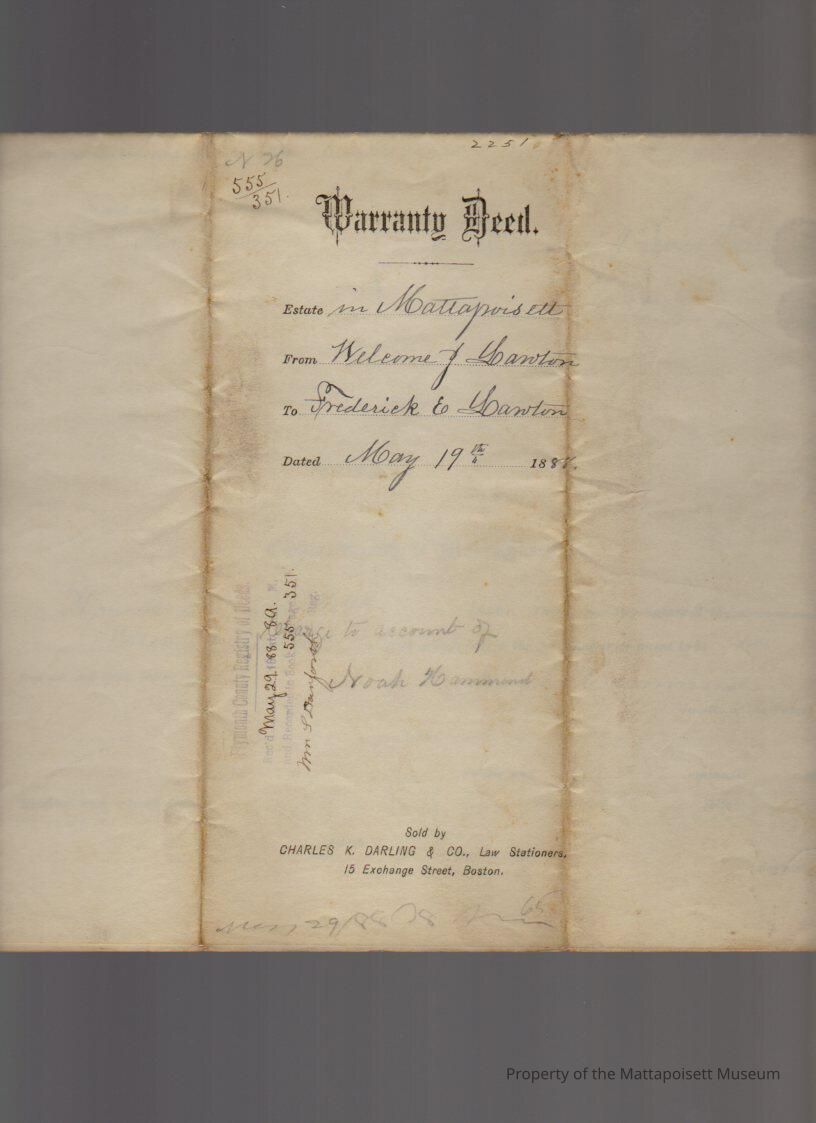 2251
N 76
555
351.
Warranty Deed.
Estate in Mattapoisett
From Welcome J Lawton
To Frederick E Lawton
Dated May 19th 1888.
Plymouth County Registry of Deeds.
Rec'd May 29, 1888. 8 A. M.
and Recorded in Book 555 Page 351.
Wm S Danforth Reg.
Charge to account of
Noah Hammond
Sold by
CHARLES K. DARLING & CO., Law Stationers,
15 Exchange Street, Boston.
May 29/88 65
Property of the Mattapoisett Museum